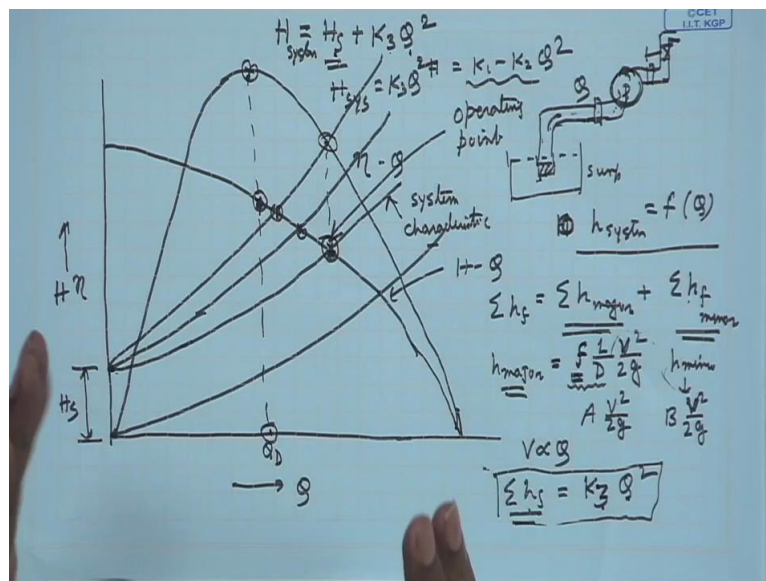 CCET
I.I.T. KGP
H system = Hs + K3 Q²
Hsys = K3Q²
H = K1 - K2 Q²
operating
point
η - Q
system
characteristic
H - Q
H η
Hs
QD
Q
Q
P
sump
h system = f(Q)
Σhf = Σh major + Σhf minor
h major = f l/D V²/2g
h minor
A V²/2g
B V²/2g
V ∝ Q
Σhf = K3 Q²